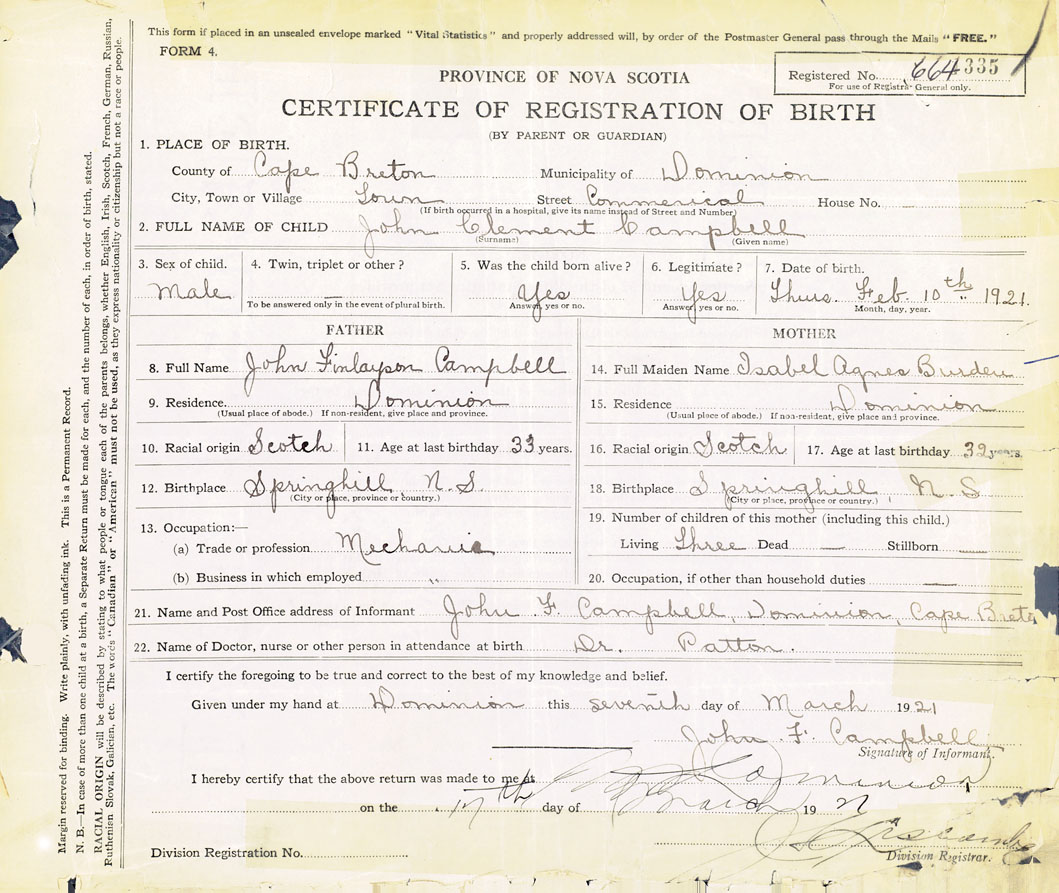 This form if placed in an unsealed envelope marked "Vital Statistics" and properly addressed will, by order of the Postmaster General pass through the Mails "FREE."
FORM 4.
Registered No. 664335
For use of Registrar General only.
PROVINCE OF NOVA SCOTIA
CERTIFICATE OF REGISTRATION OF BIRTH
(BY PARENT OR GUARDIAN)
1. PLACE OF BIRTH.
County of Cape Breton Municipality of Dominion
City, Town or Village Town Street Commerical House No.
(If birth occurred in a hospital, give its name instead of Street and Number)
2. FULL NAME OF CHILD John Clement Campbell
(Surname) (Given name)
3. Sex of child. 4. Twin, triplet or other? 5. Was the child born alive? 6. Legitimate? 7. Date of birth.
Male — Yes Yes Thurs. Feb. 10th 1921.
To be answered only in the event of plural birth. Answer yes or no. Answer yes or no. Month, day, year.
FATHER
8. Full Name John Finlayson Campbell
9. Residence. Dominion
(Usual place of abode.) If non-resident, give place and province.
10. Racial origin Scotch 11. Age at last birthday 33 years.
12. Birthplace Springhill N. S.
(City or place, province or country.)
13. Occupation:—
(a) Trade or profession Mechanic
(b) Business in which employed "
MOTHER
14. Full Maiden Name Isabel Agnes Burden
15. Residence Dominion
(Usual place of abode.) If non-resident, give place and province.
16. Racial origin Scotch 17. Age at last birthday 32 years.
18. Birthplace Springhill N. S
(City or place, province or country.)
19. Number of children of this mother (including this child.)
Living Three Dead — Stillborn —
20. Occupation, if other than household duties —
21. Name and Post Office address of Informant John F. Campbell, Dominion, Cape Breto
22. Name of Doctor, nurse or other person in attendance at birth Dr. Patton.
I certify the foregoing to be true and correct to the best of my knowledge and belief.
Given under my hand at Dominion this seventh day of March 1921
John F. Campbell
Signature of Informant.
I hereby certify that the above return was made to me at Dominion
on the 17th day of March 19
Division Registration No.
Division Registrar.
Margin reserved for binding. Write plainly, with unfading ink. This is a Permanent Record.
N. B.—In case of more than one child at a birth, a Separate Return must be made for each, and the number of each, in order of birth, stated.
RACIAL ORIGIN will be described by stating to what people or tongue each of the parents belongs, whether English, Irish, Scotch, French, German, Russian,
Ruthenian Slovak, Galicien, etc. The words "Canadian" or "American" must not be used, as they express nationality or citizenship but not a race or people.